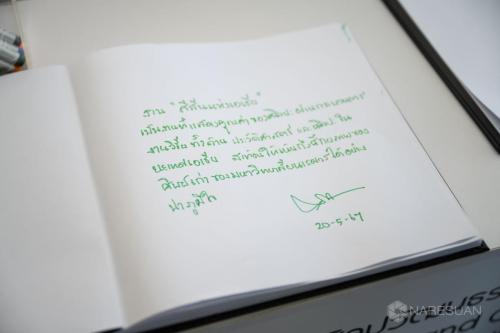 งาน "สีสันแห่งเอเชีย"
เป็นงานที่แสดงคุณค่าของศิลปะ ผ่านกระบวนการ
งานวิจัย ทั้งด้าน ประวัติศาสตร์ และศิลปะ ใน
ประเทศเอเชีย สะท้อนให้เห็นถึงศักยภาพของ
ศิษย์เก่า ของมหาวิทยาลัยนเรศวรได้อย่าง
น่าภูมิใจ
20-5-67
NARESUAN